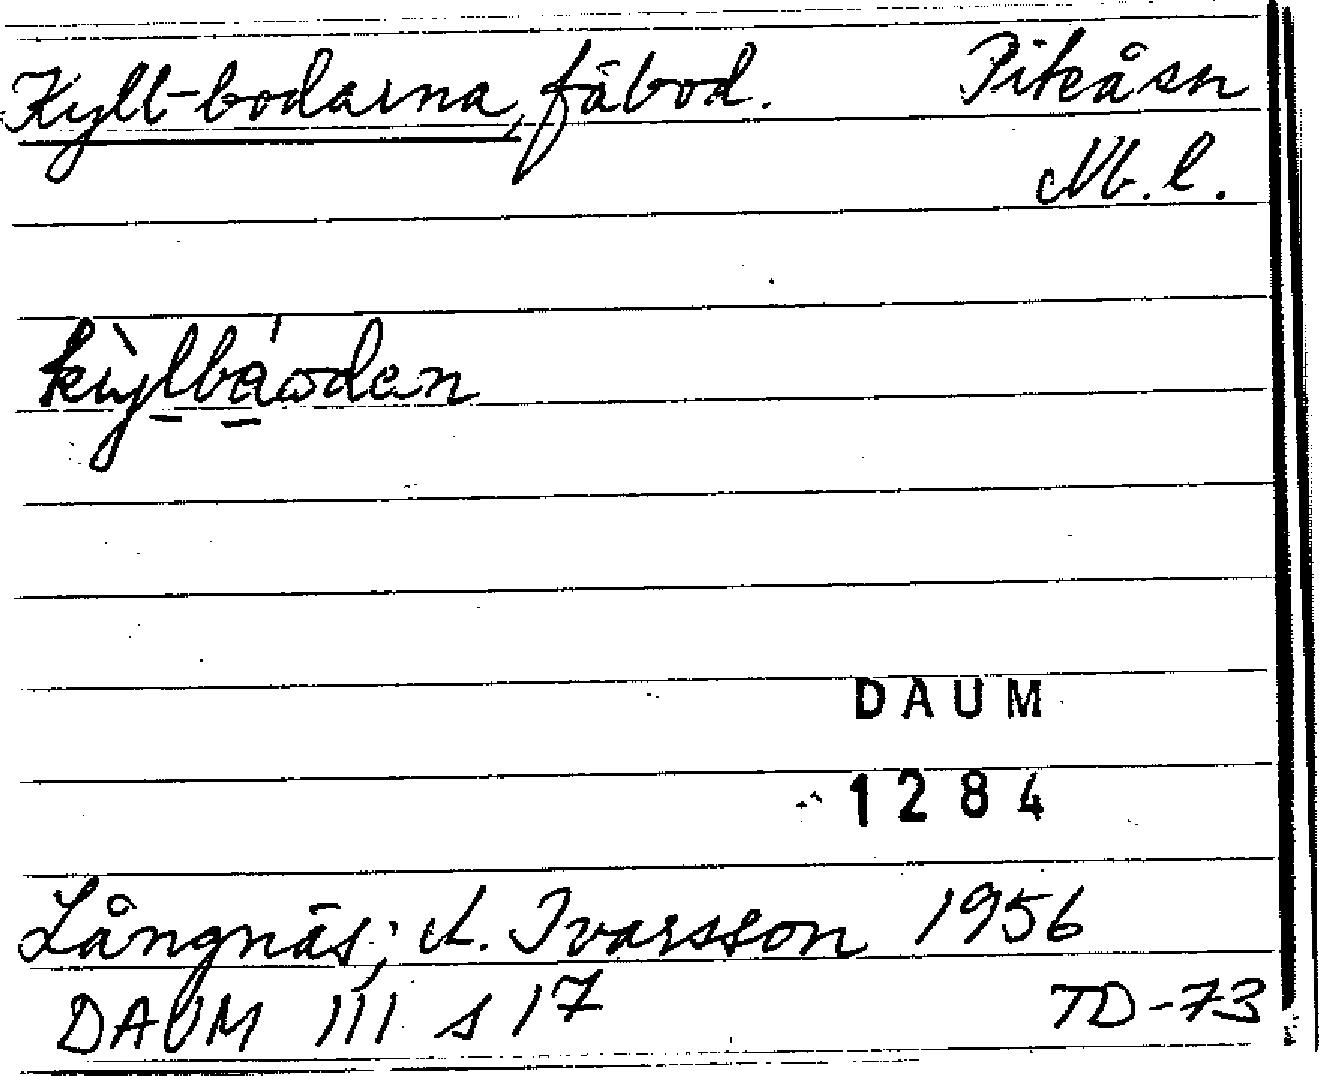 Kyll-bodarna, fäbod. Piteåsn
Nb. l.
kỳlbáodan
DAUM
1284
Långnäs; A. Ivarsson 1956
DAUM 111 s 17 TD-73